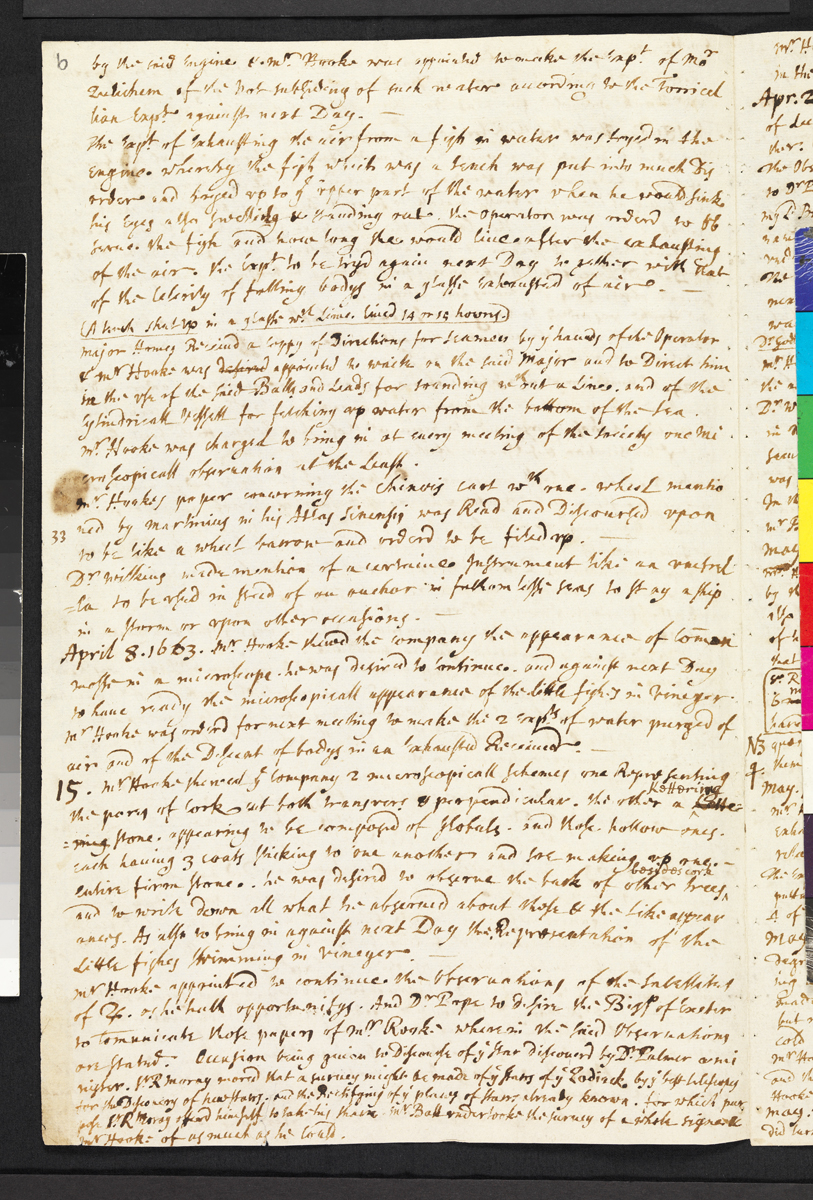 6
by the said Engine. & Mr. Hooke was appointed to make the Expt. of Monr
Zulichem of the Not subsiding of such water according to the Torricel
lian Expt. against next Day.
the Expt of Exhausting the air from a fish in water was tryed in the
Engine. whereby the fish which was a tench was put into much Dis
order and heysed up to ye upper part of the water when he would sink
his Eyes also swelling & standing out. the Operator was orderd to ob
serue. the fish and how long the would liue. after the exhausting
of the air. the Expt. to be tryd again next Day together with that
of the Celerity of falling bodys in a glasse Exhausted of aire.
(A tench shut up in a glasse wth Lime. liued 14 or 15 hours.)
major Homes Receiud a Coppy of Directions for Seamen by ye hands of the Operator
& mr Hooke was desired appointed to waite on the said Major and to Direct him
in the use of the said Balls and Leads for sounding without a Line. and of the
Cylindricall Vessell for fetching up water from the bottom of the Sea.
mr. Hooke was charged to bring in at euery meeting of the Society one Mi
croscopicall obseruation at the Least.
mr Hookes paper concerning the Chinois Cart wth one. wheel mentio
ned by martinius in his Atlas Sinensis was Read and Discoursed upon
33
to be like a wheel barrow and orderd to be filed up.
Dr. wilkins made mention of a certaine Instrument like an umbrel
=la to be used in steed of an anchor in fathomlesse seas to stay a ship
in a storm or upon other occasions.
April 8. 1663. mr. Hooke shewd the company the appearance of Common
mosse in a microscope. he was desired to Continue. and against next Day
to haue ready the microscopicall appearance of the little fishes in Vineger.
mr Hooke was orderd for next meeting to make the 2 Expts of water purged of
air and of the Descent of bodys in an Exhausted Receiuer.
15. mr Hooke shewed ye Company 2 microscopicall Schemes one Representing
the pores of Cork cut both transvers & perpendicular. the other a Kettering
=ring stone. appearing to be composed of Globuls. and those hollow ones.
each having 3 coats sticking to one another and soe making up one.
entire firm stone. he was desired to obserue the bark of other trees besides cork
and to write down all what he obserued about those & the like appear
ances. As also to bring in against next Day the Representation of the
Little fishes swimming in vineger.
mr Hooke appointed to continue. the Obseruations of the Satellites
of ♃. as he hath opportunitys. And Dr Pope to desire the Bisp. of Exeter
to Comunicate those papers of mr Rooke wherein the said Obseruations
are stated. Occasion being giuen to Discourse of ye Star discouerd by Dr. Palmer a mi
nister. Sr R moray moued that a suruey might be made of ye stars of ye Zodiack. by ye best telescopes
for the Discouery of new stars. and the Rectifying of ye places of stars already known. for which pur
pose Sr R Moray offerd himself to take his share. mr. Ball undertooke the suruey of a whole signe &
mr Hooke of as much as he Could.
Apr. 2
N3
May.
May.